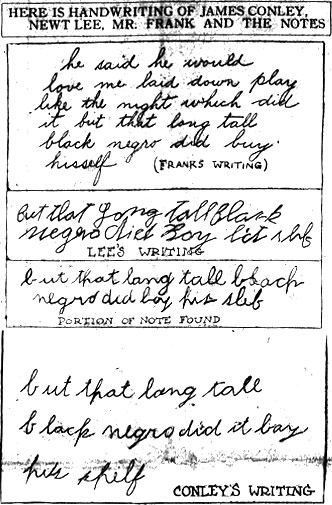 HERE IS HANDWRITING OF JAMES CONLEY,
NEWT LEE, MR. FRANK AND THE NOTES
he said he would
love me laid down play
like the night which did
it but that long tall
black negro did buy
hisself (FRANKS WRITING)
but that long tall black
negro did boy his slef
LEE'S WRITING
but that long tall black
negro did boy his slef
PORTION OF NOTE FOUND
but that long tall
black negro did it bay
his shelf
CONLEY'S WRITING